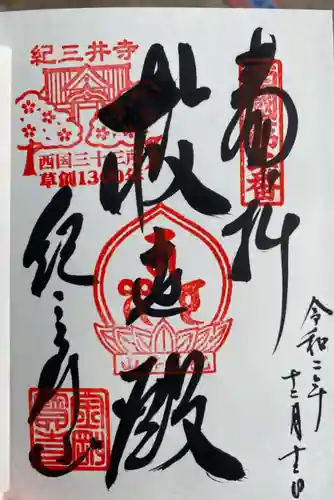 奉拝
西國第二番
救世殿
紀三井寺
西国三十三所
草創1300年
紀三井寺
令和二年
十二月十三日